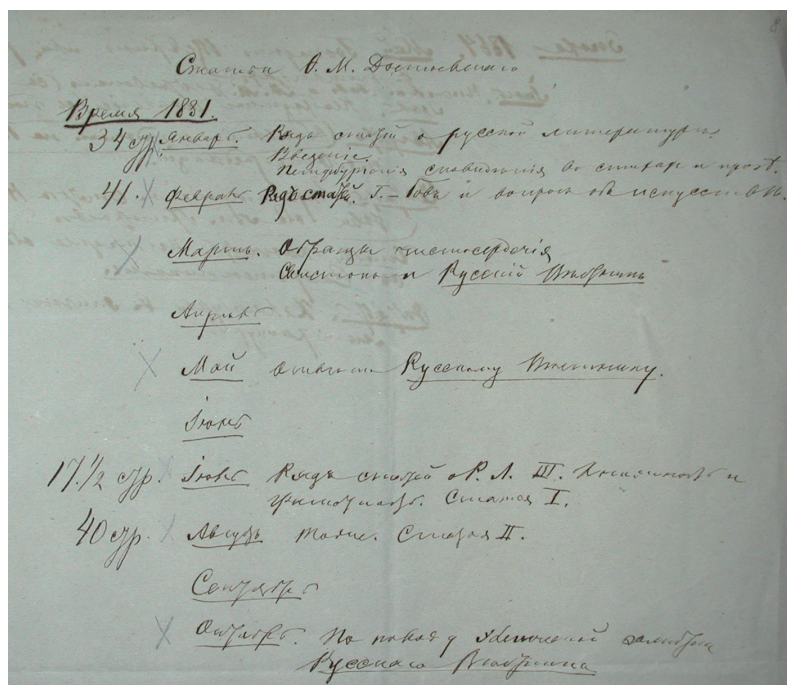 8
Статьи Ѳ. М. Достоевскаго
Время 1861.
34 стр. Январь. Рядъ статей о русской литературѣ.
Введеніе.
Петербургскія сновидѣнія въ стихахъ и прозѣ.
41. Февраль Рядъ статей. I. –бовъ и вопросъ объ искусствѣ.
Мартъ. Образцы чистосердечія
Свистокъ и Русскій Вѣстникъ
Апрѣль
Май Отвѣтъ Русскому Вѣстнику.
Іюнь
17.1/2 стр. Іюль Рядъ статей о Р. Л. III. Книжность и
грамотность. Статья I.
40 стр. Августъ тоже. Статья II.
Сентябрь
Октябрь. По поводу замѣтки
Русскаго Вѣстника